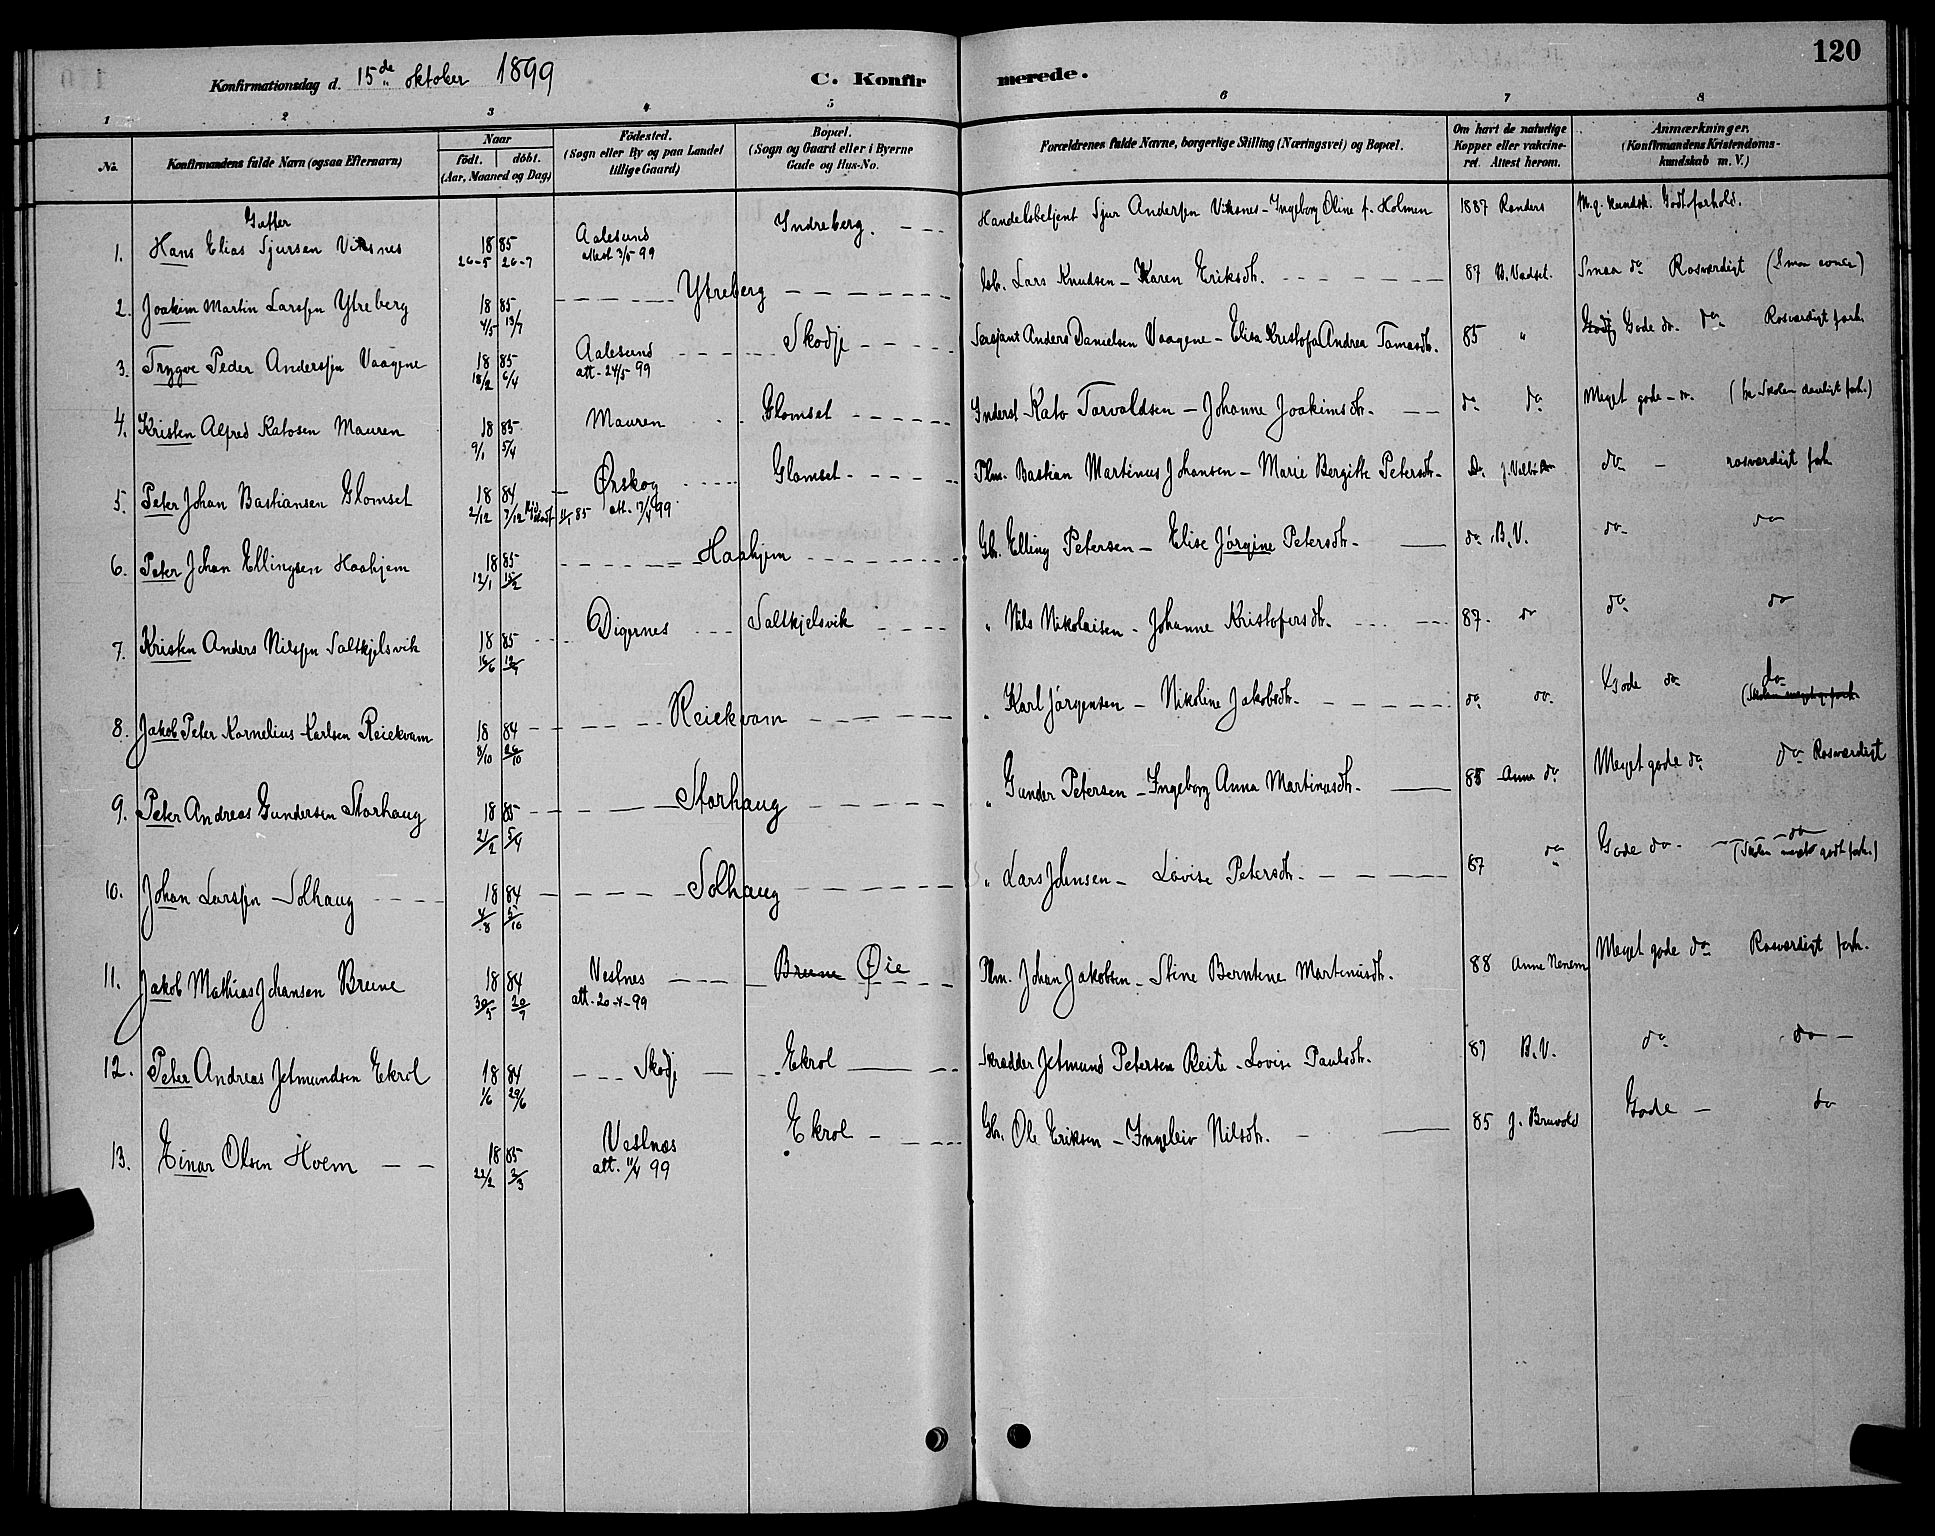 120
Konfirmationsdag d. 15de oktober 1899 C. Konfirmerede.
1 2 3 4 5 6 7 8
No. Konfirmandens fulde Navn (ogsaa Efternavn)
Naar
födt. döbt.
(Aar, Maaned og Dag)
Födested.
(Sogn eller By og paa Landet
tillige Gaard)
Bopæl.
(Sogn og Gaard eller i Byerne
Gade og Hus-No.
Forældrenes fulde Navne, borgerlige Stilling (Næringsvei) og Bopæl.
Om havt de naturlige
Kopper eller vakcine-
ret. Attest herom.
Anmærkninger.
(Konfirmandens Kristendoms-
kundskab m. V.)
Gutter
1. Hans Elias Sjursen Viksnes 1885 Aalesund Indreberg. Handelsbetjent Sjur Andersen Viksnes - Ingeborg Oline f. Holmen 1887 Randers M. g. kundsk. Godt forhold.
26-5 26-7 attest 3/5 99
2. Joakim Martin Larssen Ytreberg 1885 Ytreberg Lars Knudsen - Karen Eriksdtr. 87 B. Vadset. Smaa do Rosværdigt
4/5 13/7
3. Trygve Peder Anderssen Vaagene 1885 Aalesund Skodje Sersjant Anders Danielsen Vaagene - Elisa Kristofa Andrea Tomasdtr. 85 " Gode do. do Rosværdigt forh.
18/2 6/4 att. 24/5 99
4. Kristen Alfred Katosen Mauren 1885 Mauren Glomset Inderst Kato Torvaldsen - Johanne Joakimsdtr. do do Meget gode - do.
9/1 5/4
5. Peter Johan Bastiansen Glomset 1884 Ørskog Glomset Plm. Bastian Martinus Johansen - Marie Bergitte Petersdtr. do do - rosværdigt forh
2/12 7/12 11/1 85 att. 17/4 99
6. Peter Johan Ellingsen Haahjem 1885 Haahjem Gbr. Elling Petersen - Elise Jørgine Petersdtr. do B.V. do do
12/1 15/2
7. Kristen Anders Nilssen Saltkjelsvik 1885 Digernes Saltkjelsvik " Nils Nikolaisen - Johanne Kristofersdtr. 87. do do do
16/6 19/7
8. Jakob Peter Kornelius Karlsen Reiekvam 1884 Reiekvam " Karl Jørgensen - Nikoline Jakobsdtr. do do. Gode do do
8/10 26/10
9. Peter Andreas Gundersen Storhaug 1885 Storhaug " Gunder Petersen - Ingeborg Anna Martinusdtr. 88 Anne do Meget gode do do Rosværdigt
21/2 5/4
10. Johan Larssen Solhaug 1884 Solhaug " Lars Johnsen - Lovise Petersdtr. 87 do Gode do. do
4/8 5/10 (Skolen meget godt forh.)
11. Jakob Mathias Johansen Brune 1884 Vestnes Brune Øie Plm. Johan Jakobsen - Stine Berntine Martinusdtr. 88 Anne Nenem Meget gode do Rosværdigt forh.
30/5 20/7 att. 20-4-99
12. Peter Andreas Jetmundsen Ekrol 1884 Skodj Ekrol Skrædder Jetmund Petersen Reite - Lovise Paulsdtr. 87 B.V. do do
1/6 29/6
13. Einar Olsen Hvem 1885 Vestnæs Ekrol Gbr. Ole Eriksen - Ingeleiv Nilsdtr. 85 J. Bruvold Gode - do
22/2 2/3 att. 11/4 99